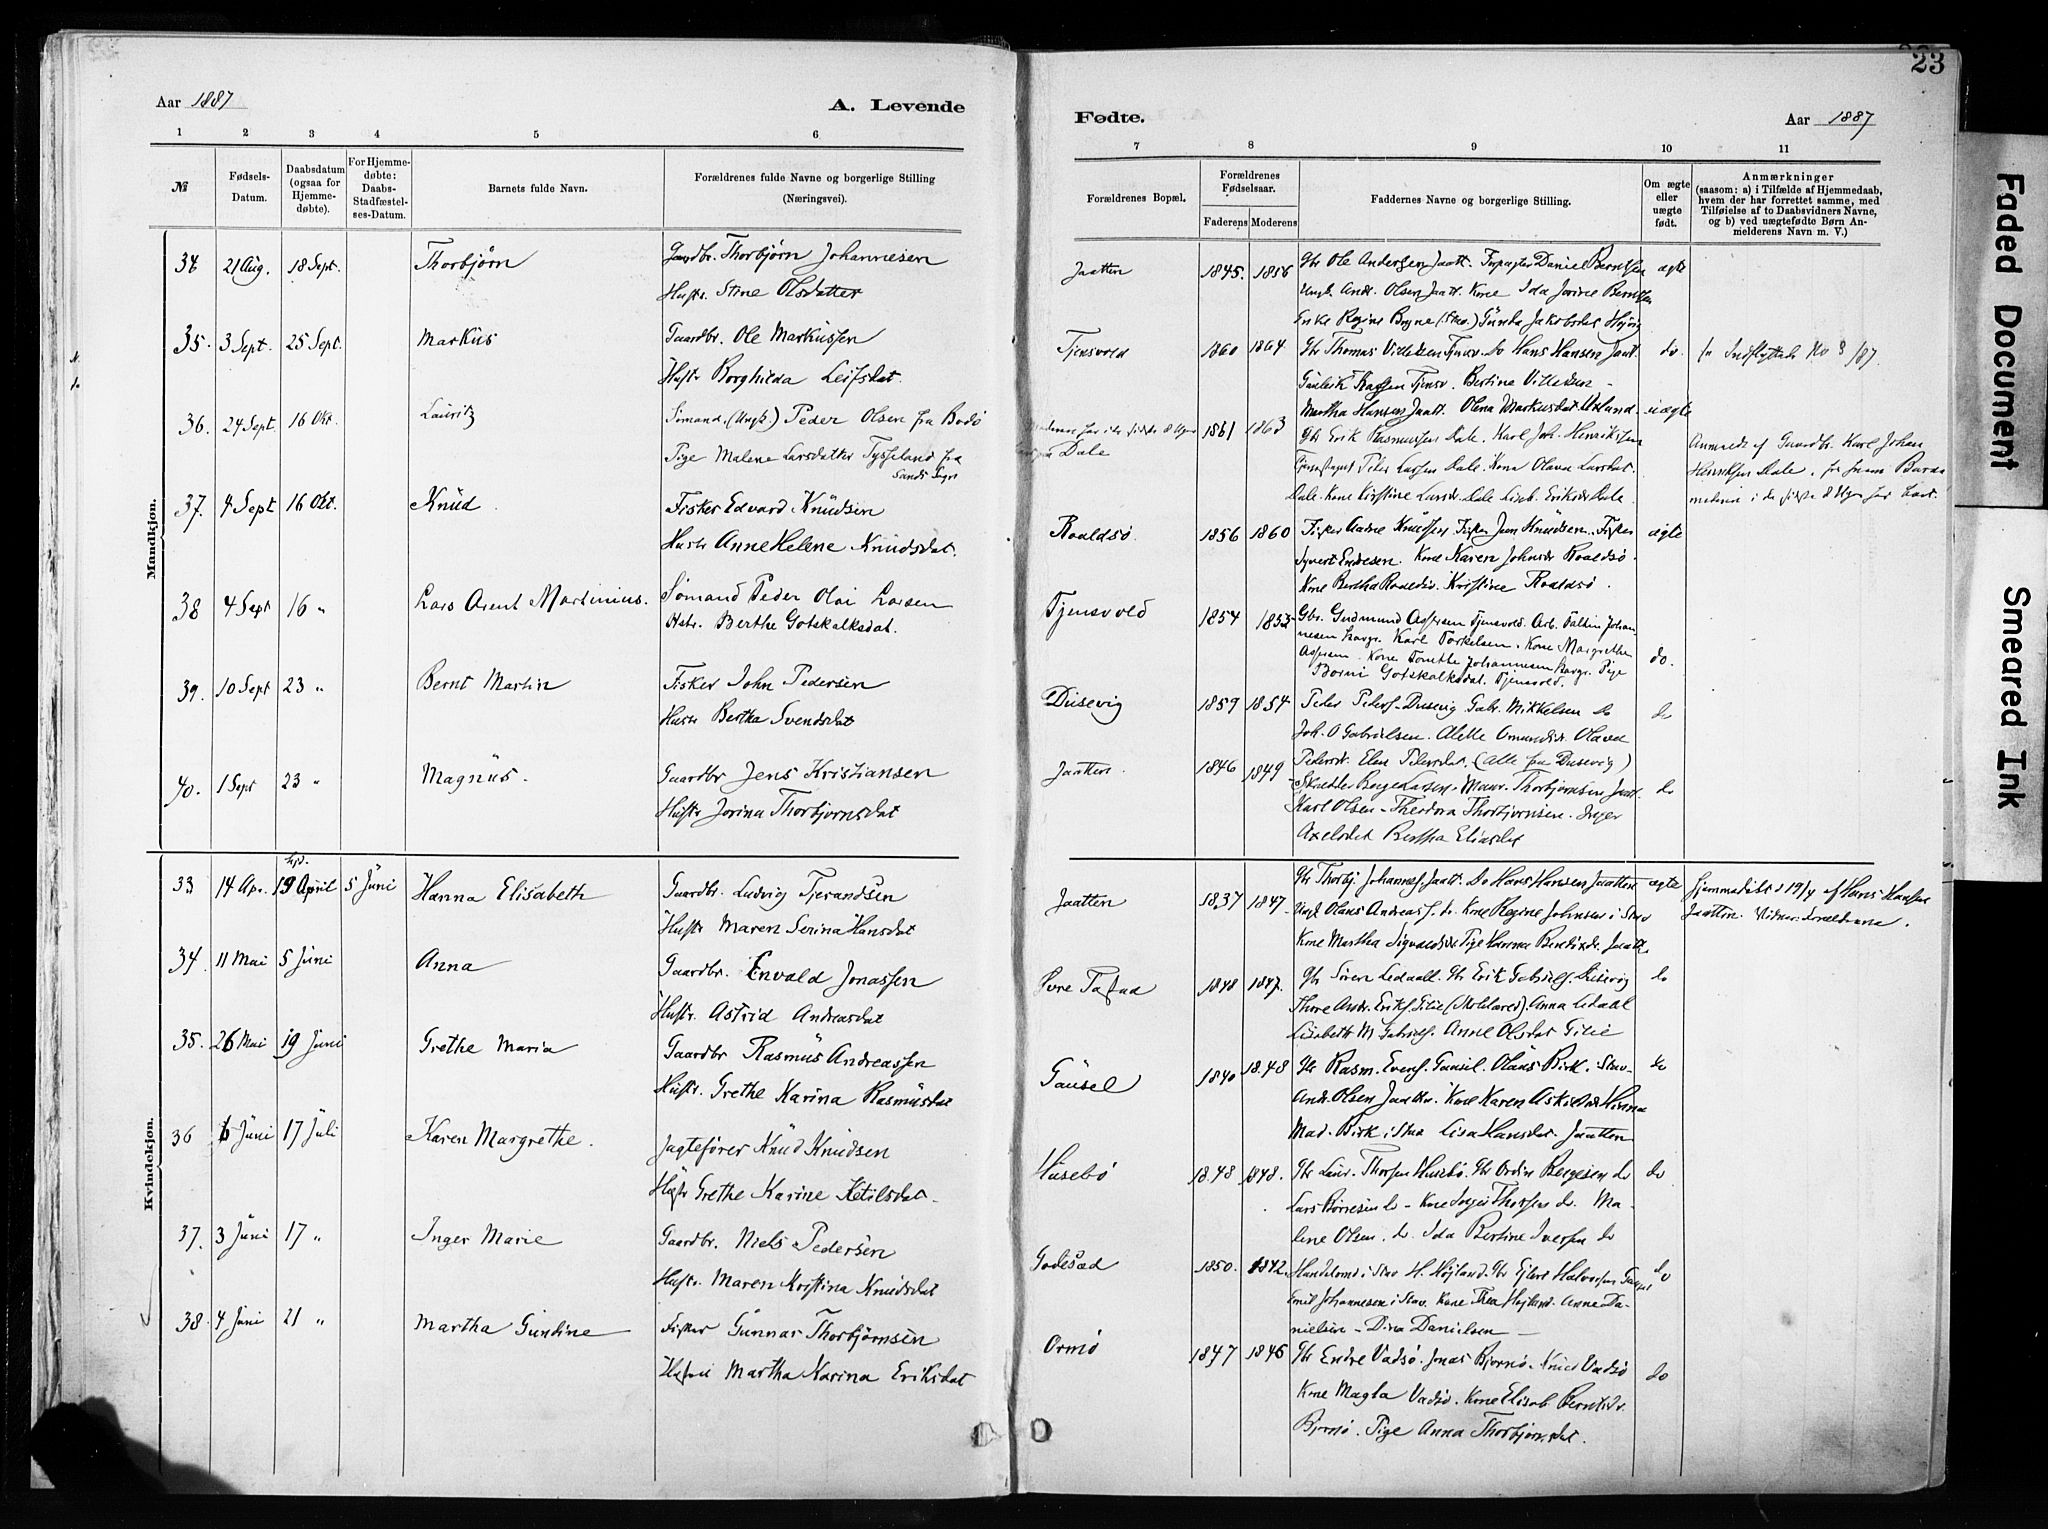 23
Aar 1887
A. Levende
Fødte.
Aar 1887
1 2 3 4 5 6 7 8 9 10 11
№
Fødsels-Datum.
Daabsdatum (ogsaa for Hjemmedøbte).
For Hjemmedøbte: Daabs-Stadfæstelses-Datum.
Barnets fulde Navn.
Forældrenes fulde Navne og borgerlige Stilling (Næringsvei).
Forældrenes Bopæl.
Forældrenes Fødselsaar.
Faderens Moderens
Faddernes Navne og borgerlige Stilling.
Om ægte eller uægte født.
Anmærkninger (saasom: a) i Tilfælde af Hjemmedaab, hvem der har forrettet samme, med Tilføielse af to Daabsvidners Navne, og b) ved uægtefødte Børn Anmelderens Navn m. V.)
Mandkjøn.
34 21 Aug. 18 Sept. Thorbjørn Gaardbr. Thorbjørn Johannesen
Hustr. Stine Olsdatter
Jaatten 1845. 1856 Gbr Ole Andersen Jaatt. Daniel Berntsen ægte
Ungk. Andr. Olsen Jaatt. Kone Ida Jorine Berntsen
35. 3 Sept. 25 Sept. Markus Gaardbr. Ole Markussen
Hustr Borghilda Leifsdat.
Enke Regine Bryne Gunda Jakobsdat
Tjensvold 1860 1864 Gbr Thomas Tjensv. Do Hans Hansen Jaat. do. Indflyttede No 3 /87.
Tjensv. Bertine
Martha Hansen Jaatt. Olena Markusdat
36. 24 Sept. 16 Okt. Lauritz Sømand (Ungk) Peder Olsen fra Bodø
Pige Malene Larsdatter Tysseland fra
Sands Sogn
Dale 1861 1863 uægte
Gbr Erik Rasmussen Dale. Karl Joh. Henriksen
Peder Larsen Dale. Kone Olava Larsdat.
Dale. Kone Kirstine Dale
Anmeldt af Gaardbr. Karl Johan
Henriksen Dale.
37. 4 Sept 16 Okt. Knud. Fisker Edvard Knudsen
Hustr Anne Helene Knudsdat.
Roaldsø 1856 1860 Fisker Aadne Knudsen Fisker Knudsen. Fisker ægte
Syvert Endresen. Kone Karen Johnsdr Roaldsø
Kone Bertha Roaldsø. Kristine Roaldsø.
38 4 Sept 16 „ Lars Arent Martinius. Sømand Peder Olai Larsen
Hstr. Berthe Gotskalksdat.
Tjensvold 1854 1853 Gbr. Gudmund Aspersen Tjensvold. Arb. Johannesen Karl Torkelsen. Kone Margrethe
Aspersen. Kone Johannesen Pige do.
Gotskalksdat. Tjensvold.
39. 10 Sept 23 „ Bernt Martin Fisker John Pedersen
Hustr Bertha Svendsdat
Dusevig 1859 1854 Peder Peders. Dusevig Gabr. Mikkelsen Do do
Joh. O Gabrielsen. Alette Omundsdr Olava
Pedersdr. Elen Pedersdat. (Alle fra Dusevig)
40. 1 Sept 23 „ Magnus. Gaardbr Jens Kristiansen
Hustr Jorina Thorbjørnsdat
Jaatten. 1846 1849 Børge Larsen. Thorbjørnsen Jaat. do
Karl Olsen. Theodora Thorbjørnsen. Inger
Axelsdat Bertha Eliasdat
Kvindekjøn.
33 14 Apr. hjd. 19 April 5 Juni Hanna Elisabeth Gaardbr. Ludvig Tjerandsen
Hustr Maren Serina Hansdat
Jaatten 1837 1847 Gbr Thorbj. Johannes. Jaatt. Do Hans Hansen Jaatten ægte
Ungk Olaus Andreas s. do. Kone Regine Johnsen i Stav
Kone Martha Sigvaldsdr Pige Hanna Berntsdr. Jaatt.
Hjemmedøbt 19/4 af Hans Hansen
Jaatten. Vidner: Forældrene.
34. 11 Mai 5 Juni Anna Gaardbr. Envald Jonassen
Hustr. Astrid Andreasdat
Øvre Tastad 1848 1847. Gbr Søren Ledaall. Gbr Erik Gabriels. Dusevig do
Thore Andr. Eriks. Anna Ledaal
Lisabeth M Gabriels. Anne Olsdat
35. 26 Mai 19 Juni Grethe Maria Gaardbr Rasmus Andreassen
Hustr. Grethe Karina Rasmusdat
Gausel 1840 1848 Gbr Rasm. Evens. Gausel. Olaus Birk i Stav do
Andr. Olsen Jaatten. Kone Karen Hinna
Mad. Birk i Stav Lisa Hansdat. Jaatten
36 6 Juni 17 Juli Karen Margrethe. Jagtefører Knud Knudsen
Hustr Grethe Karine Ketilsdat.
Husebø 1848 1848. Gbr Laur. Thorsen Husebø. Gbr Ordin Børgesen do do
Lars Børresen do. Kone Inger Thorsen do. Malene Olsen. do. Ida Bertine Iversen do
37. 3 Juni 17 „ Inger Marie Gaardbr. Niels Pedersen
Hustr. Maren Kristina Knudsdat
Godesæd 1850. 1842. Handelsmd i Stav H. Højland. Gbr Ejlert Halvorsen Gausel do
Emil Johannesen i Stav. Kone Thea Højland. Anne Danielsen. Dina Danielsen
38. 4 Juni 21 „ Martha Gurine Fisker Gunnar Thorbjørnsen
Hustru Martha Karina Eriksdat
Ormø 1847 1846 Gbr Endre Vadsø. Jonas Bjørnø. Knud Vadsø
Kone Magla Vadsø. Kone Elisab. Berntsdr. do
Bjørnø. Pige Anna Thorbjørnsdat.
Faded Document
Smeared Ink